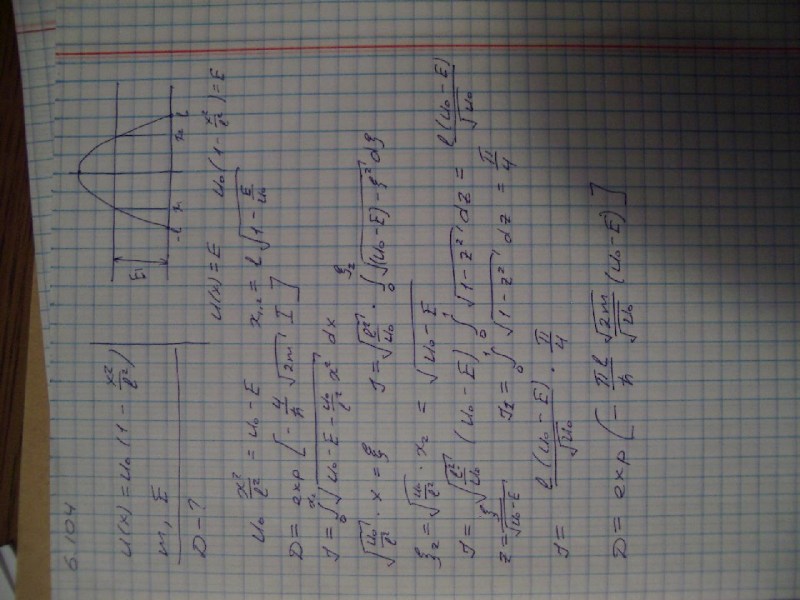 6.104
U(x) = U₀ (1 - x²/l²)
m, E
D - ?
E
-l x₁ x₂ l
U(x) = E U₀ (1 - x²/l²) = E
U₀ x²/l² = U₀ - E x₁,₂ = l √(1 - E/U₀)
D = exp [ - 4/ħ √(2m) I ]
J = ∫₀^x₂ √(U₀ - E - U₀/l² x²) dx
√(U₀/l²) · x = ξ J = √(l²/U₀) · ∫₀^ξ₂ √((U₀ - E) - ξ²) dξ
ξ₂ = √(U₀/l²) · x₂ = √(U₀ - E)
J = √(l²/U₀) (U₀ - E) ∫₀¹ √(1 - z²) dz = l (U₀ - E)/√U₀
z = ξ/√(U₀ - E) J_z = ∫₀¹ √(1 - z²) dz = π/4
J = l (U₀ - E)/√U₀ · π/4
D = exp [ - πl/ħ √(2m)/√U₀ (U₀ - E) ]